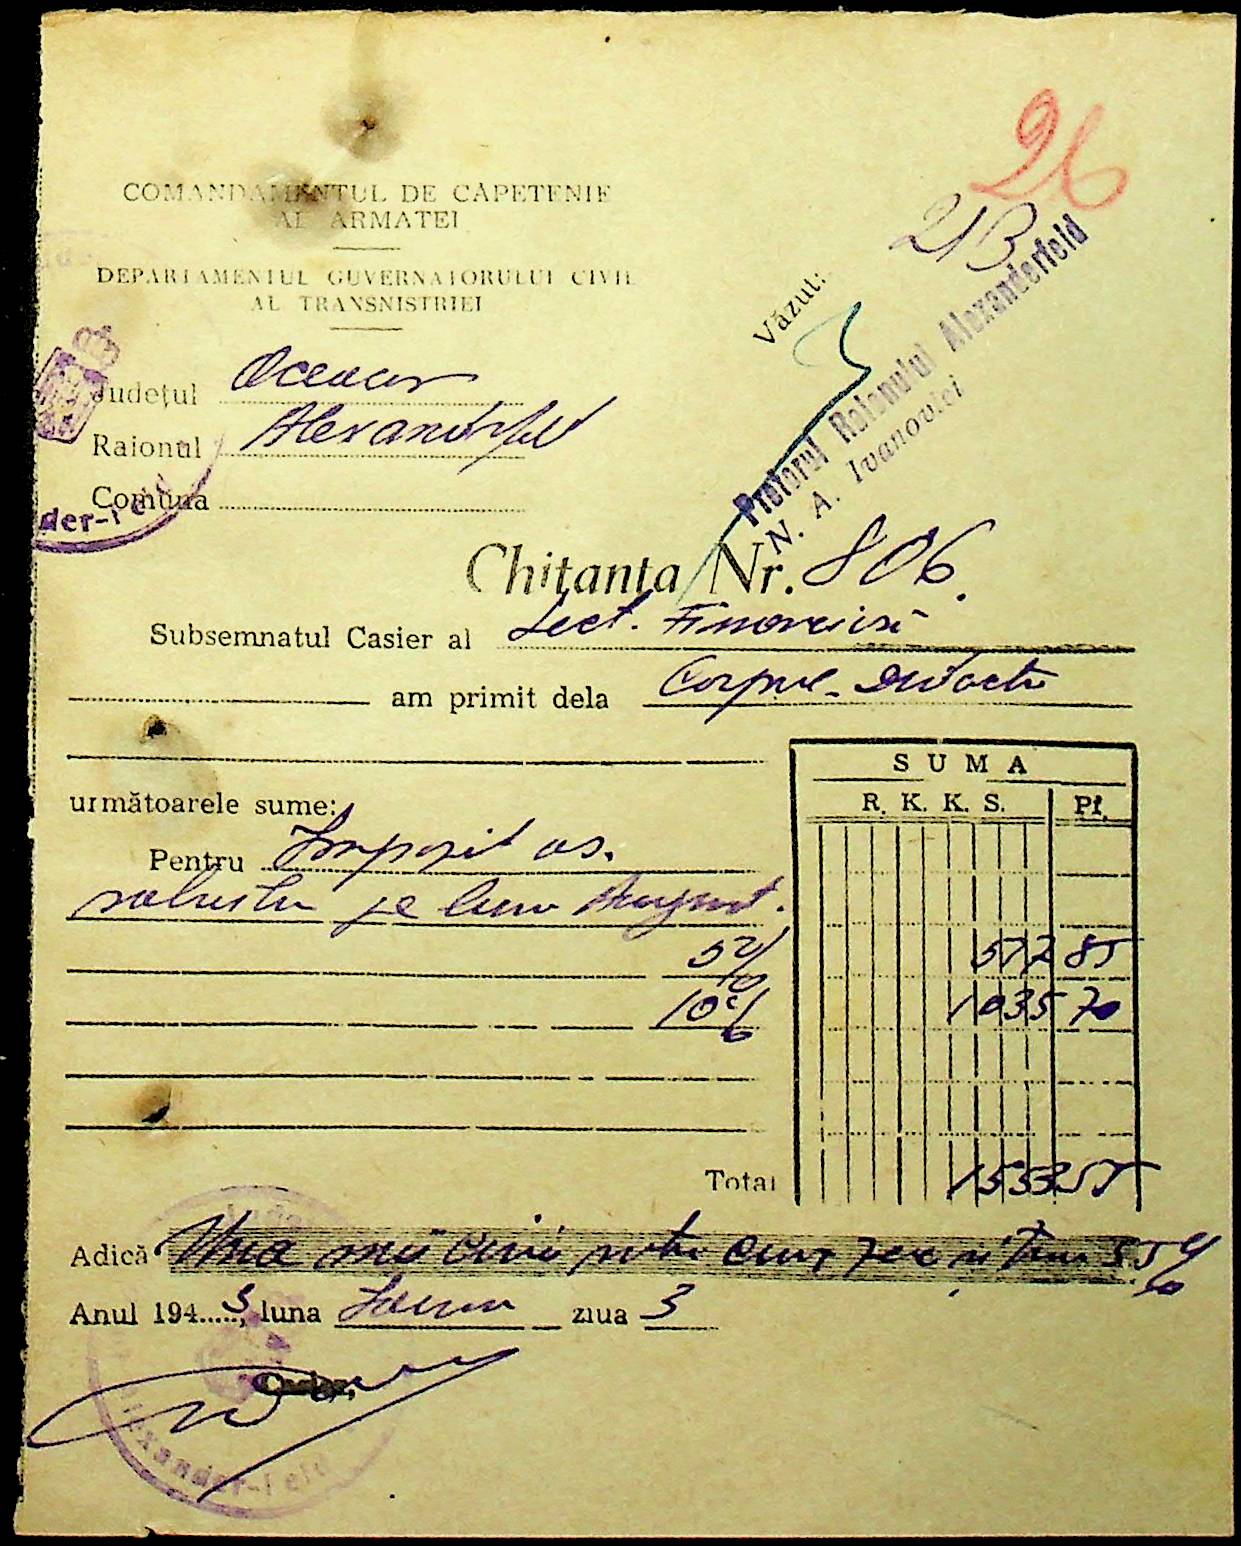 26
213
COMANDAMENTUL DE CAPETENIE
AL ARMATEI
DEPARTAMENTUL GUVERNATORULUI CIVIL
AL TRANSNISTRIEI
Văzut:
Pretorul Raionului Alexanderfeld
N. A. Ivanovici
Județul Oceacov
Raionul Alexandrfeld
Comuna
der-feld
Chitanta Nr. 806.
Subsemnatul Casier al Sect. Financiară
am primit dela Corpul Didactic
SUMA
R. K. K. S. Pf.
următoarele sume:
Pentru Impozit as.
pe luna August.
5% 572 85
10% 1035 70
Total 1553 55
Adică Una mie cinci sute cinz zec si trei 55%
Anul 1943, luna ziua 3
Casier,
Alexander-feld